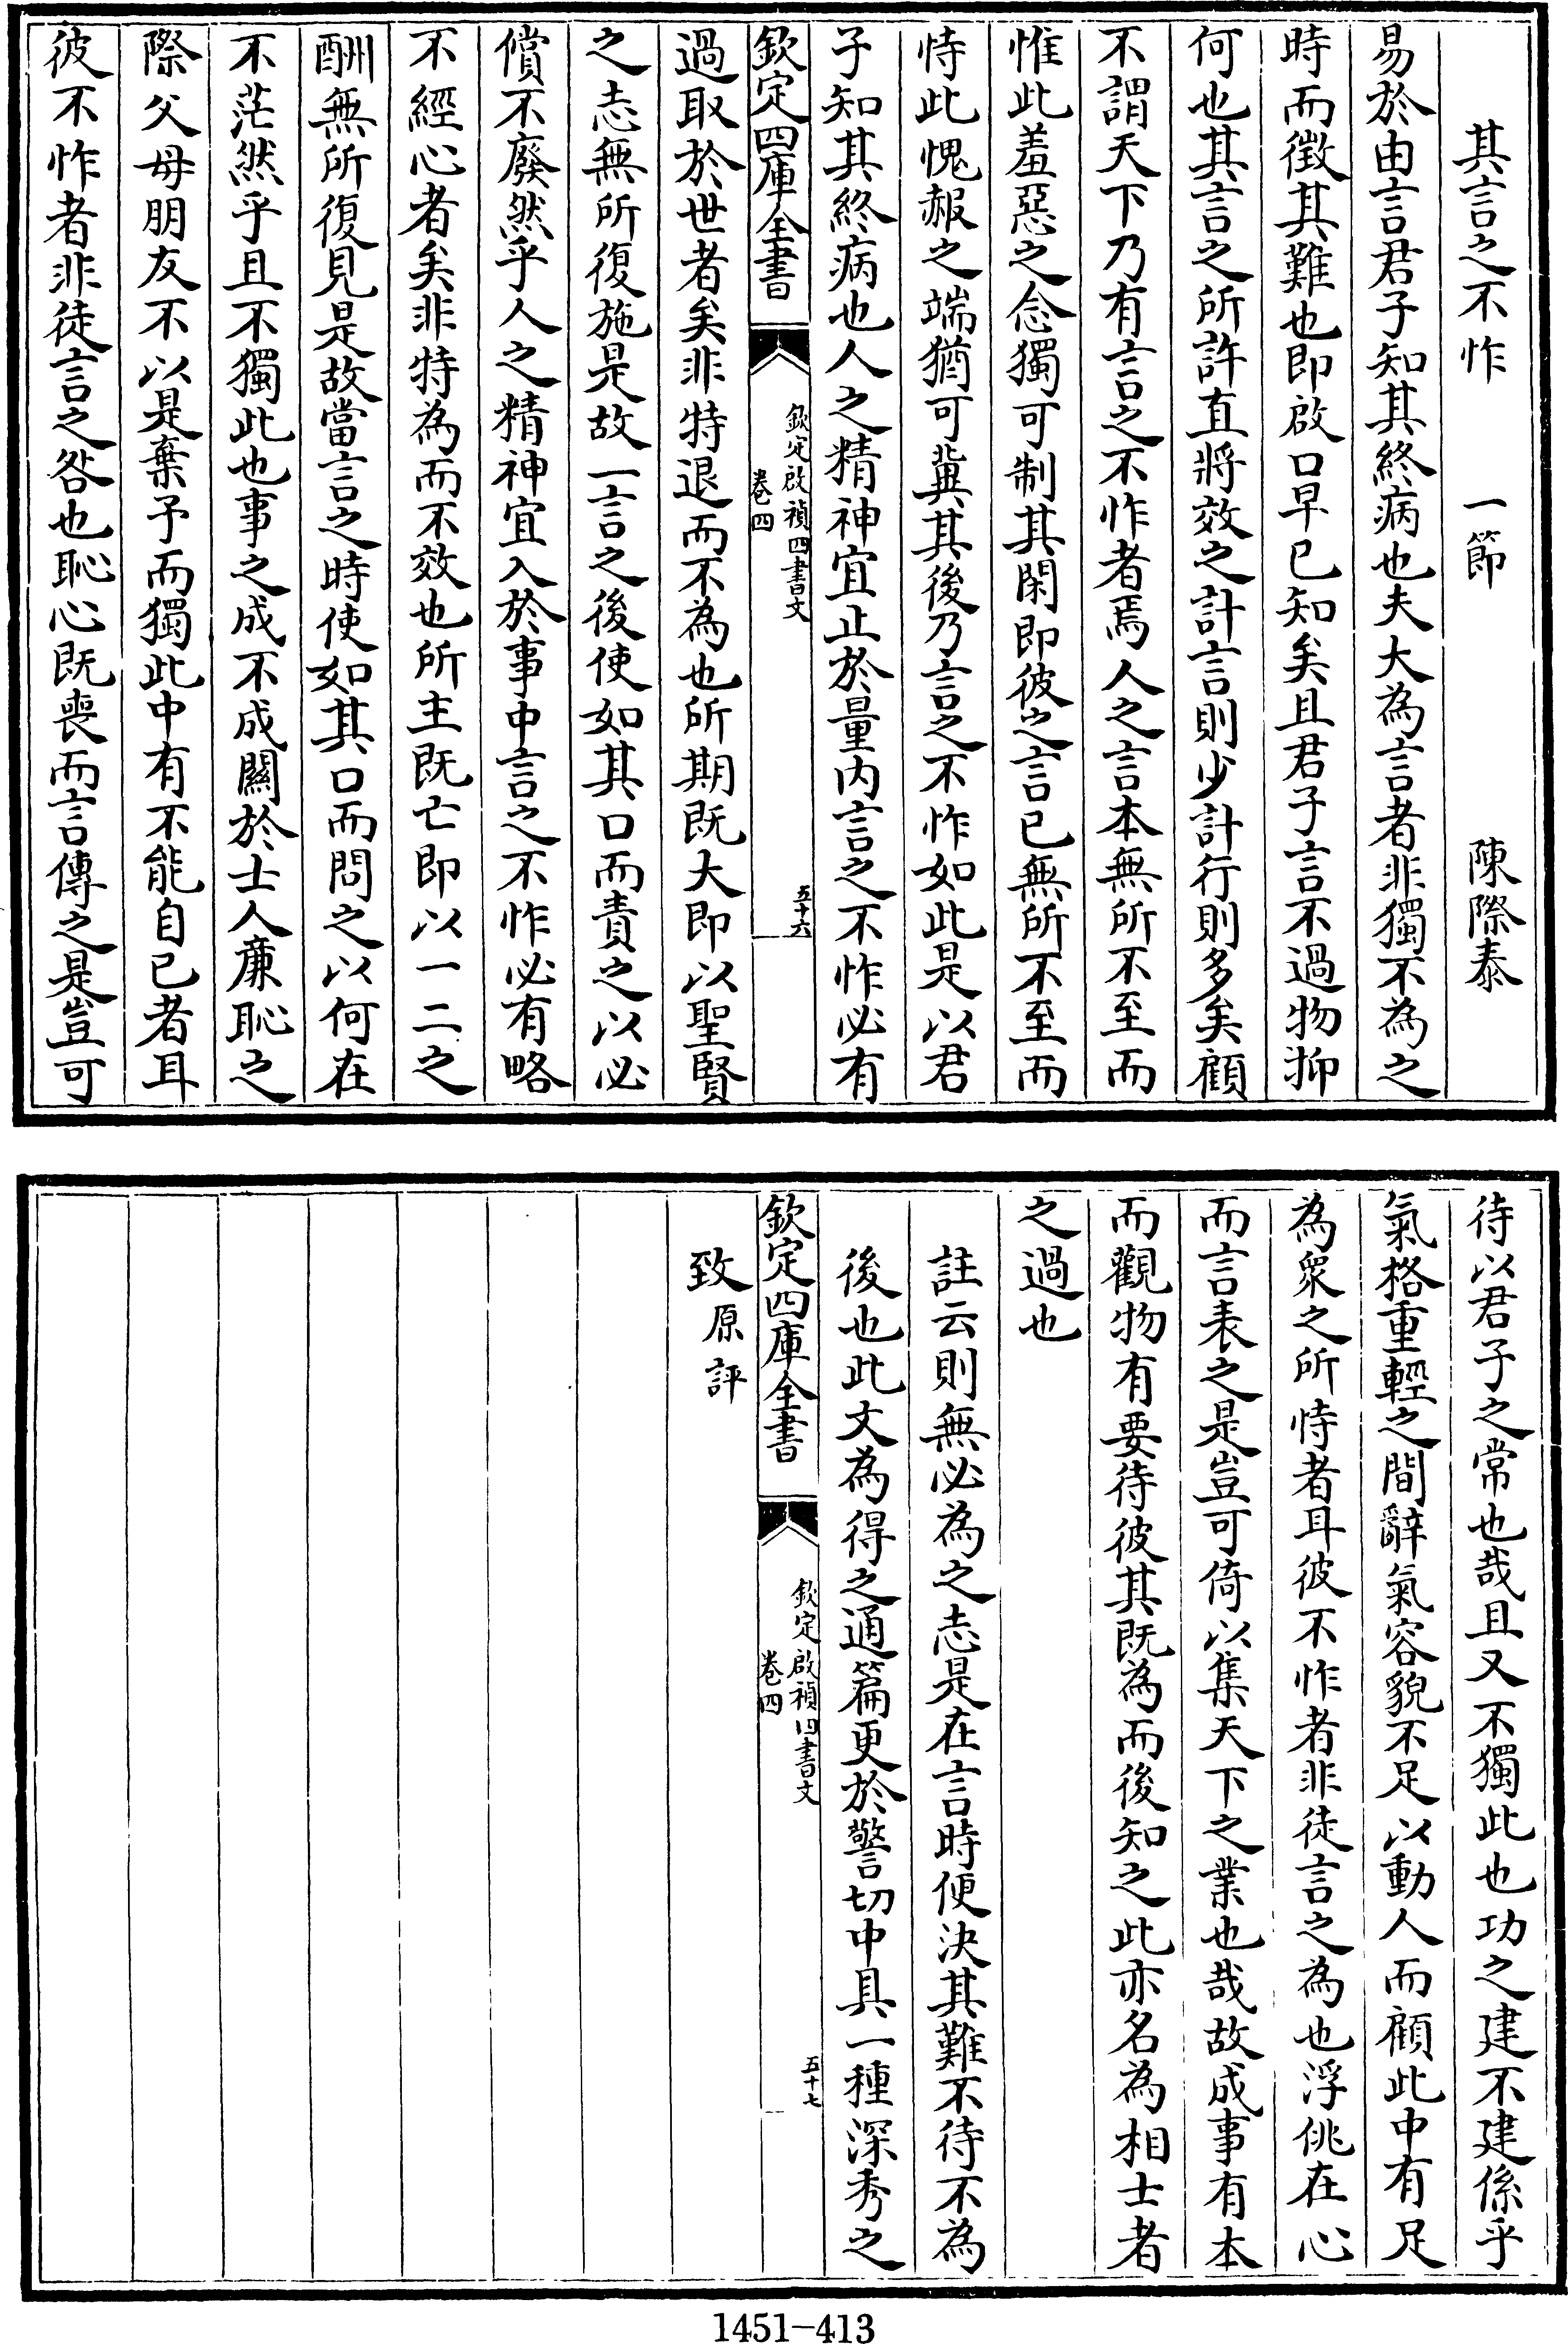 其言之不怍　一節　陳際泰
易於由言君子知其終病也夫大為言者非獨不為之
時而徵其難也即啟口早已知矣且君子言不過物抑
何也其言之所許直將效之計言則少計行則多矣顧
不謂天下乃有言之不怍者焉人之言本無所不至而
惟此羞惡之念獨可制其閑即彼之言已無所不至而
恃此愧赧之端猶可冀其後乃言之不怍如此是以君
子知其終病也人之精神宜止於量內言之不怍必有
欽定四庫全書
欽定啟禎四書文
卷四
五十六
過取於世者矣非特退而不為也所期既大即以聖賢
之志無所復施是故一言之後使如其口而責之以必
償不廢然乎人之精神宜入於事中言之不怍必有略
不經心者矣非特為而不效也所主既亡即以一二之
酬無所復見是故當言之時使如其口而問之以何在
不茫然乎且不獨此也事之成不成關於士人廉恥之
際父母朋友不以是棄予而獨此中有不能自已者耳
彼不怍者非徒言之咎也恥心既喪而言傳之是豈可
待以君子之常也哉且又不獨此也功之建不建係乎
氣格重輕之間辭氣容貌不足以動人而顧此中有足
為衆之所恃者耳彼不怍者非徒言之為也浮佻在心
而言表之是豈可倚以集天下之業也哉故成事有本
而觀物有要待彼其既為而後知之此亦名為相士者
之過也
註云則無必為之志是在言時便決其難不待不為
後也此文為得之通篇更於警切中具一種深秀之
欽定四庫全書
欽定啟禎四書文
卷四
五十七
致原評
1451-413